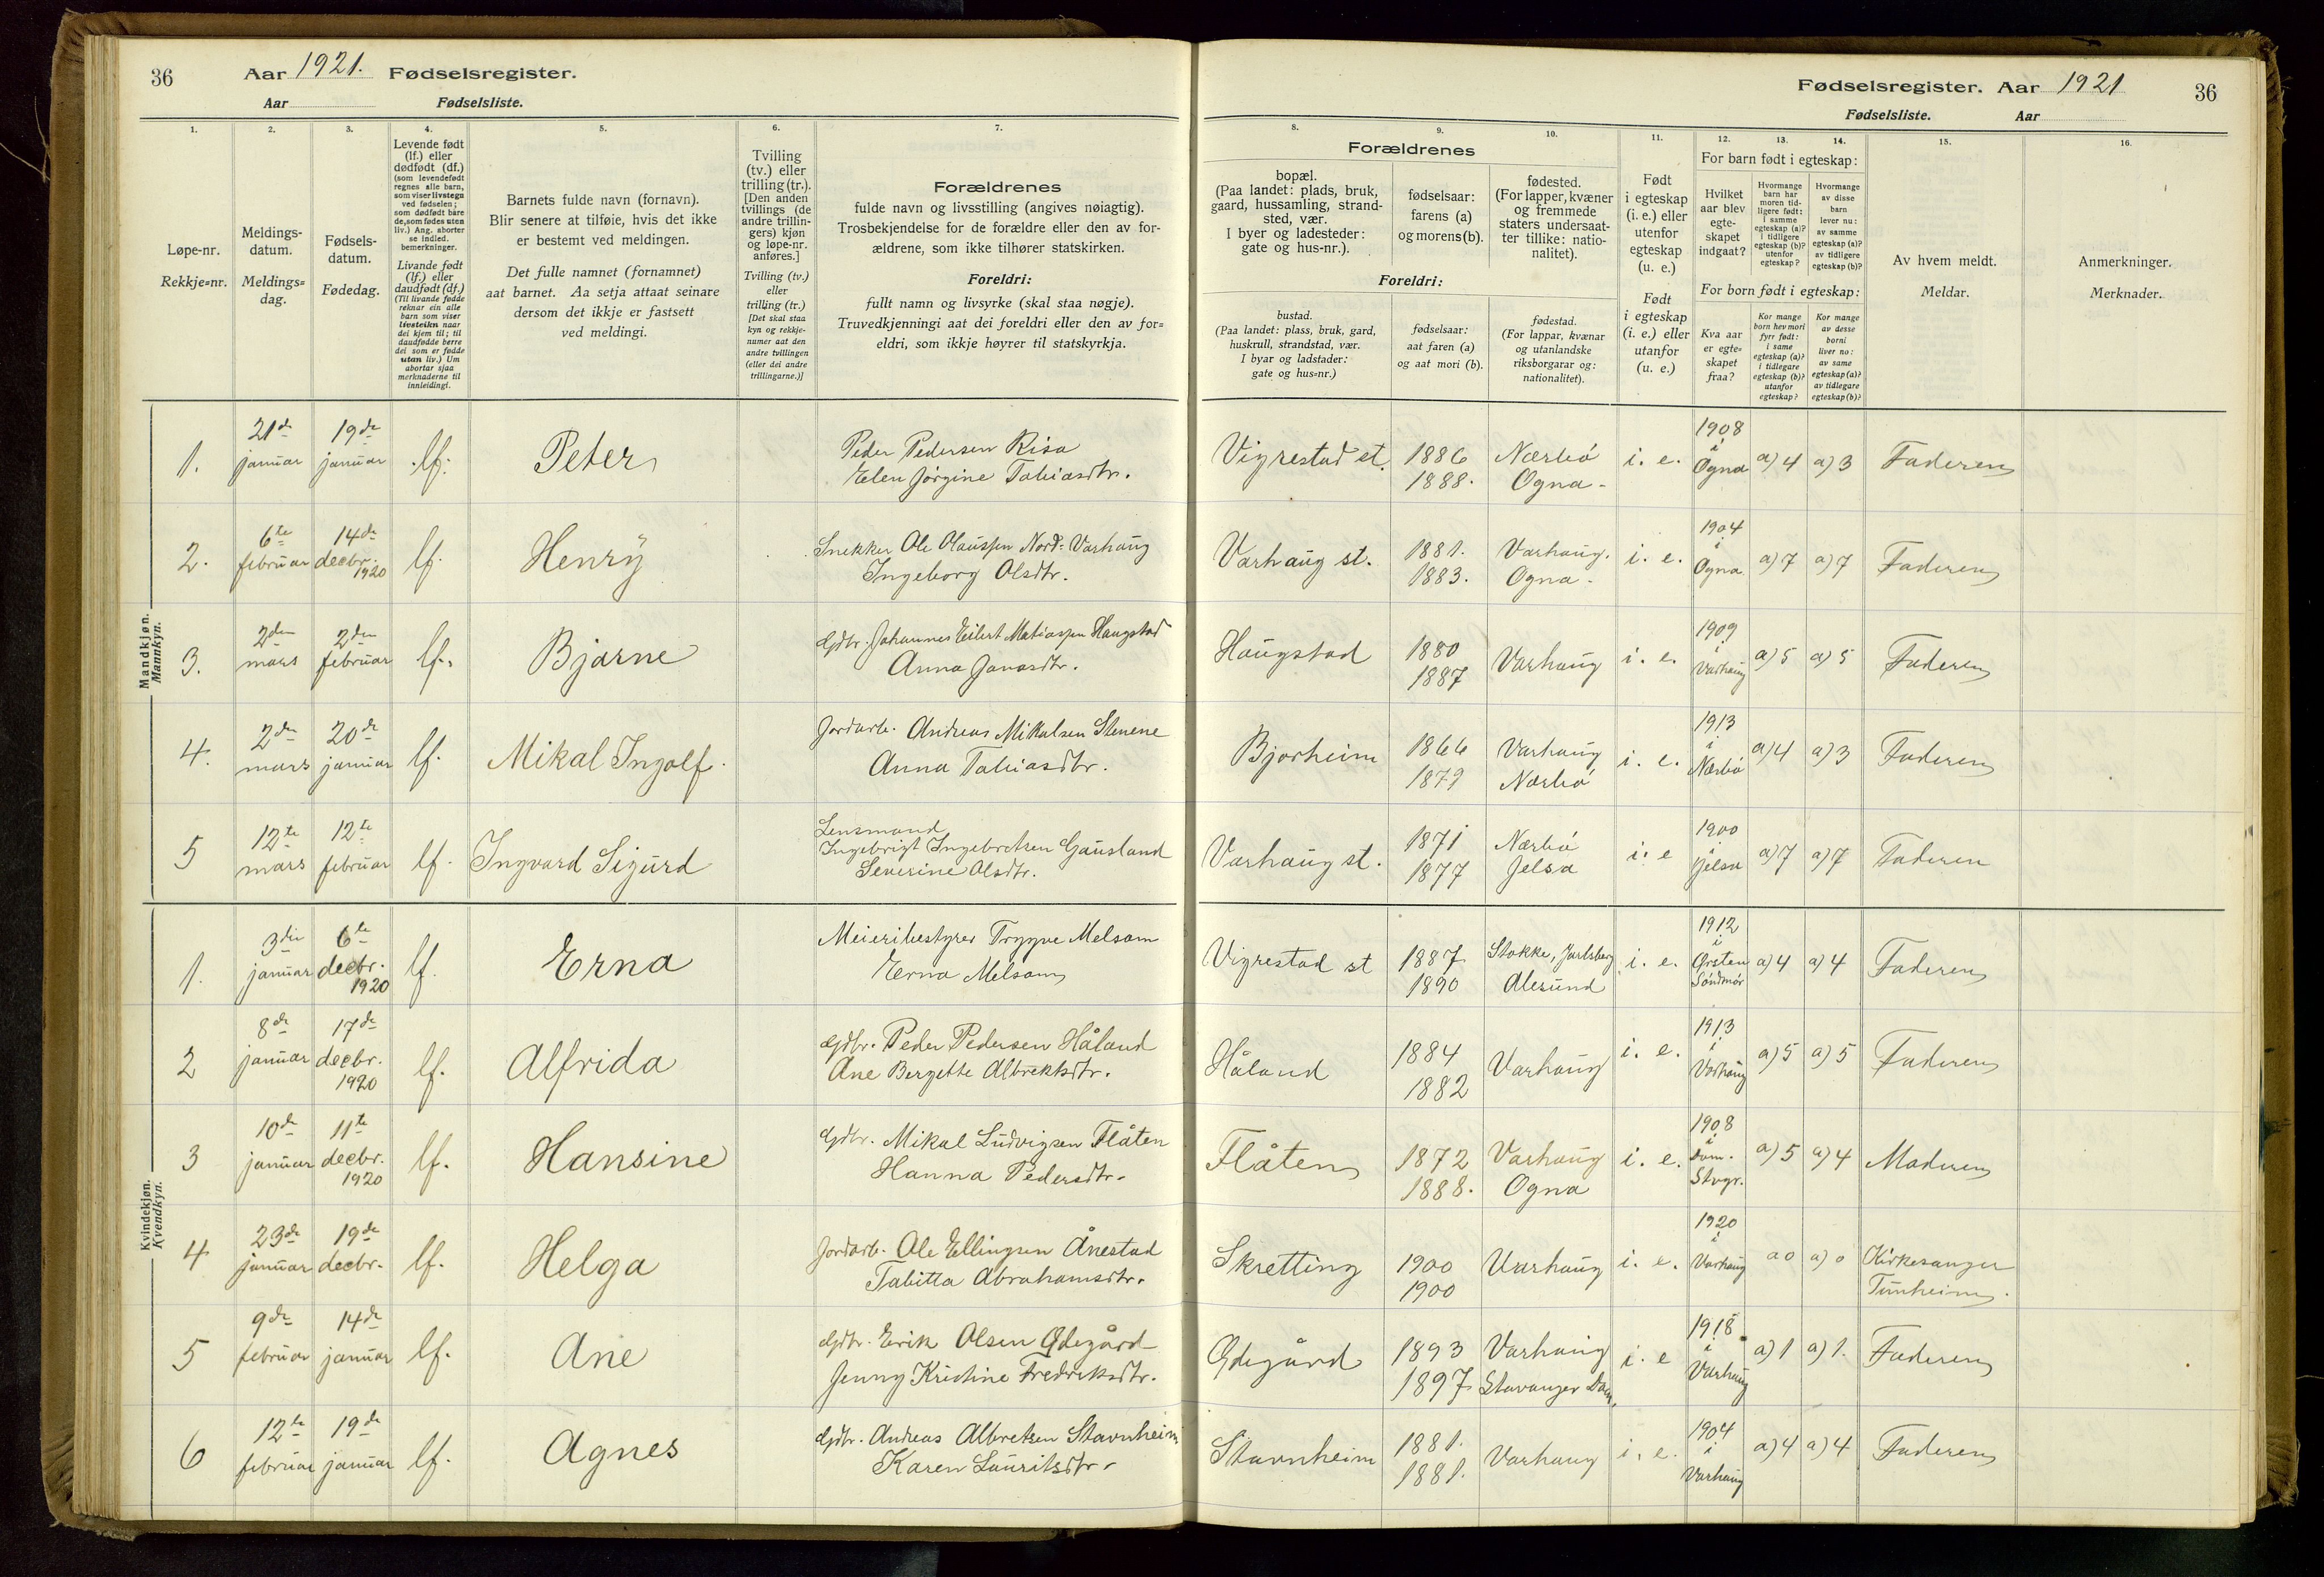 36 Aar 1921. Fødselsregister.
Aar Fødselsliste.
1. 2. 3. 4. 5. 6. 7.
Løpe-nr.
Rekkje=nr.
Meldings-
datum.
Meldings=
dag.
Fødsels-
datum.
Fødedag.
Levende født
(lf.) eller
dødfødt (df.)
(som levendefødt
regnes alle barn,
som viser livstegn
ved fødselen;
som dødfødt bare
de, som fødes uten
liv.) Ang. aborter
se indled.
bemerkninger.
Livande født
(lf.) eller
daudfødt (df.)
(Til livande fødde
reknar ein alle
barn som viser
livsteikn naar
dei kjem til; til
daudfødde berre
dei som er fødde
utan liv.) Um
abortar sjaa
merknaderne til
innleidingi.
Barnets fulde navn (fornavn).
Blir senere at tilføie, hvis det ikke
er bestemt ved meldingen.
Det fulle namnet (fornamnet)
aat barnet. Aa setja attaat seinare
dersom det ikkje er fastsett
ved meldingi.
Tvilling
(tv.) eller
trilling (tr.).
[Den anden
tvillings (de
andre trillin-
gers) kjøn
og løpe-nr.
anføres.]
Tvilling (tv.)
eller
trilling (tr.)
[Det skal staa
kyn og rekkje-
numer aat den
andre tvillingen
(eller dei andre
trillingarne.)]
Forældrenes
fulde navn og livsstilling (angives nøiagtig).
Trosbekjendelse for de forældre eller den av for-
ældrene, som ikke tilhører statskirken.
Foreldri:
fullt namn og livsyrke (skal staa nøgje).
Truvedkjenningi aat dei foreldri eller den av for=
eldri, som ikkje høyrer til statskyrkja.
Mandkjøn.
Mannkyn.
1. 21de januar 19de januar lf. Peter
Peder Pedersen Risa
Elen Jørgine Tobiasdtr.
2. 6te februar 14de decbr. 1920 lf. Henry
Snekker Ole Olaussen Nord-Varhaug
Ingeborg Olsdtr.
3. 2den mars 2den februar lf. Bjarne
Gdbr. Johannes Eilert Matiassen Haugstad
Anna Jonasdtr.
4. 2den mars 20de januar lf. Mikal Ingolf.
Jordarb. Andreas Mikalsen Stenene
Anna Tobiasdtr.
5 12te mars 12te februar lf. Ingvard Sigurd
Lensmand
Ingebrigt Ingebretsen Gausland
Severine Olsdtr.
Kvindekjøn.
Kvendkyn.
1. 3die januar 6te decbr. 1920 lf. Erna
Meieribestyrer Trygve Melsom
Erna Melsom
2 8de januar 17de decbr. 1920 lf. Alfrida
Gdbr. Peder Pedersen Håland
Ane Bergette Albrektsdtr.
3 10de januar 11te decbr. 1920 lf. Hansine
Gdbr. Mikal Ludvigsen Flåten
Hanna Pedersdtr.
4 23de januar 19de decbr. lf. Helga
Jordarb. Ole Ellingsen Ånestad
Tabitta Abrahamsdtr.
5 9de februar 14de januar lf. Ane
Gdbr. Erik Olsen Ødegård
Jenny Kristine Fredriksdtr.
6 12te februar 19de januar lf. Agnes
Gdbr. Andreas Albretsen Stavnheim
Karen Lauritsdtr.
Fødselsregister. Aar 1921 36
Fødselsliste. Aar
8. 9. 10. 11. 12. 13. 14. 15. 16.
Forældrenes
bopæl.
(Paa landet: plads, bruk,
gaard, hussamling, strand-
sted, vær.
I byer og ladesteder:
gate og hus-nr.).
fødselsaar:
farens (a)
og morens (b).
fødested.
(For lapper, kvæner
og fremmede
staters undersaat-
ter tillike: natio-
nalitet).
Foreldri:
bustad.
(Paa landet: plass, bruk, gard,
huskrull, strandstad, vær.
I byar og ladstader:
gate og hus=nr.)
fødselsaar:
aat faren (a)
og aat mori (b).
fødestad.
(For lappar, kvænar
og utanlandske
riksborgarar og:
nationalitet).
Født
i egteskap
(i. e.) eller
utenfor
egteskap
(u. e.)
Født
i egteskap
(i. e.) eller
utanfor
(u. e.)
For barn født i egteskap:
Hvilket
aar blev
egte-
skapet
indgaat?
Hvormange
barn har
moren tid-
ligere født:
i samme
egteskap (a)?
i tidligere
egteskap (b)?
utenfor
egteskap?
Hvormange
av disse
barn
lever nu:
av samme
egteskap (a)?
av tidligere
egteskap (b)?
For born født i egteskap:
Kva aar
er egte=
skapet
fraa?
Kor mange
born hev mori
fyrr født:
i same
egteskap (a)?
i tidlegare
egteskap (b)?
utanfor
egteskap?
Kor mange
av desse
borni
liver no:
av same
egteskap (a)?
av tidlegare
egteskap (b)?
Av hvem meldt.
Meldar.
Anmerkninger.
Merknader.
Vigrestad st. 1886 1888. Nærbø Ogna i. e. 1908 i Ogna a) 4 a) 3 Faderen
Varhaug st. 1881. 1883. Varhaug. Ogna i. e. 1904 i Ogna a) 7 a) 7 Faderen
Haugstad 1880 1887 Varhaug i. e. 1909 i Varhaug a) 5 a) 5 Faderen
Bjorheim 1866 1879 Varhaug Nærbø i. e. 1913 i Nærbø a) 4 a) 3 Faderen
Varhaug st. 1871 1877 Nærbø Jelsa i. e 1900 i Jelsa a) 7 a) 7 Faderen
Vigrestad st 1887 1890 Stokke, Jarlsberg Alesund i. e. 1912 i Ørsten Søndmør a) 4 a) 4 Faderen
Håland 1884 1882 Varhaug i. e. 1913 i Varhaug a) 5 a) 5 Faderen
Flåten 1872 1888. Varhaug Ogna i. e. 1908 i Dom. Stvgr. a) 5 a) 4 Moderen
Skretting 1900 1900 Varhaug i. e. 1920 i Varhaug a 0 a) 0 Kirkesanger Tunheim.
Ødegård 1893 1897 Varhaug Stavanger Dom. i. e 1918 i Varhaug a) 1 a) 1. Faderen
Stavnheim 1881. 1881. Varhaug i. e. 1904 i Varhaug a) 4 a) 4 Faderen